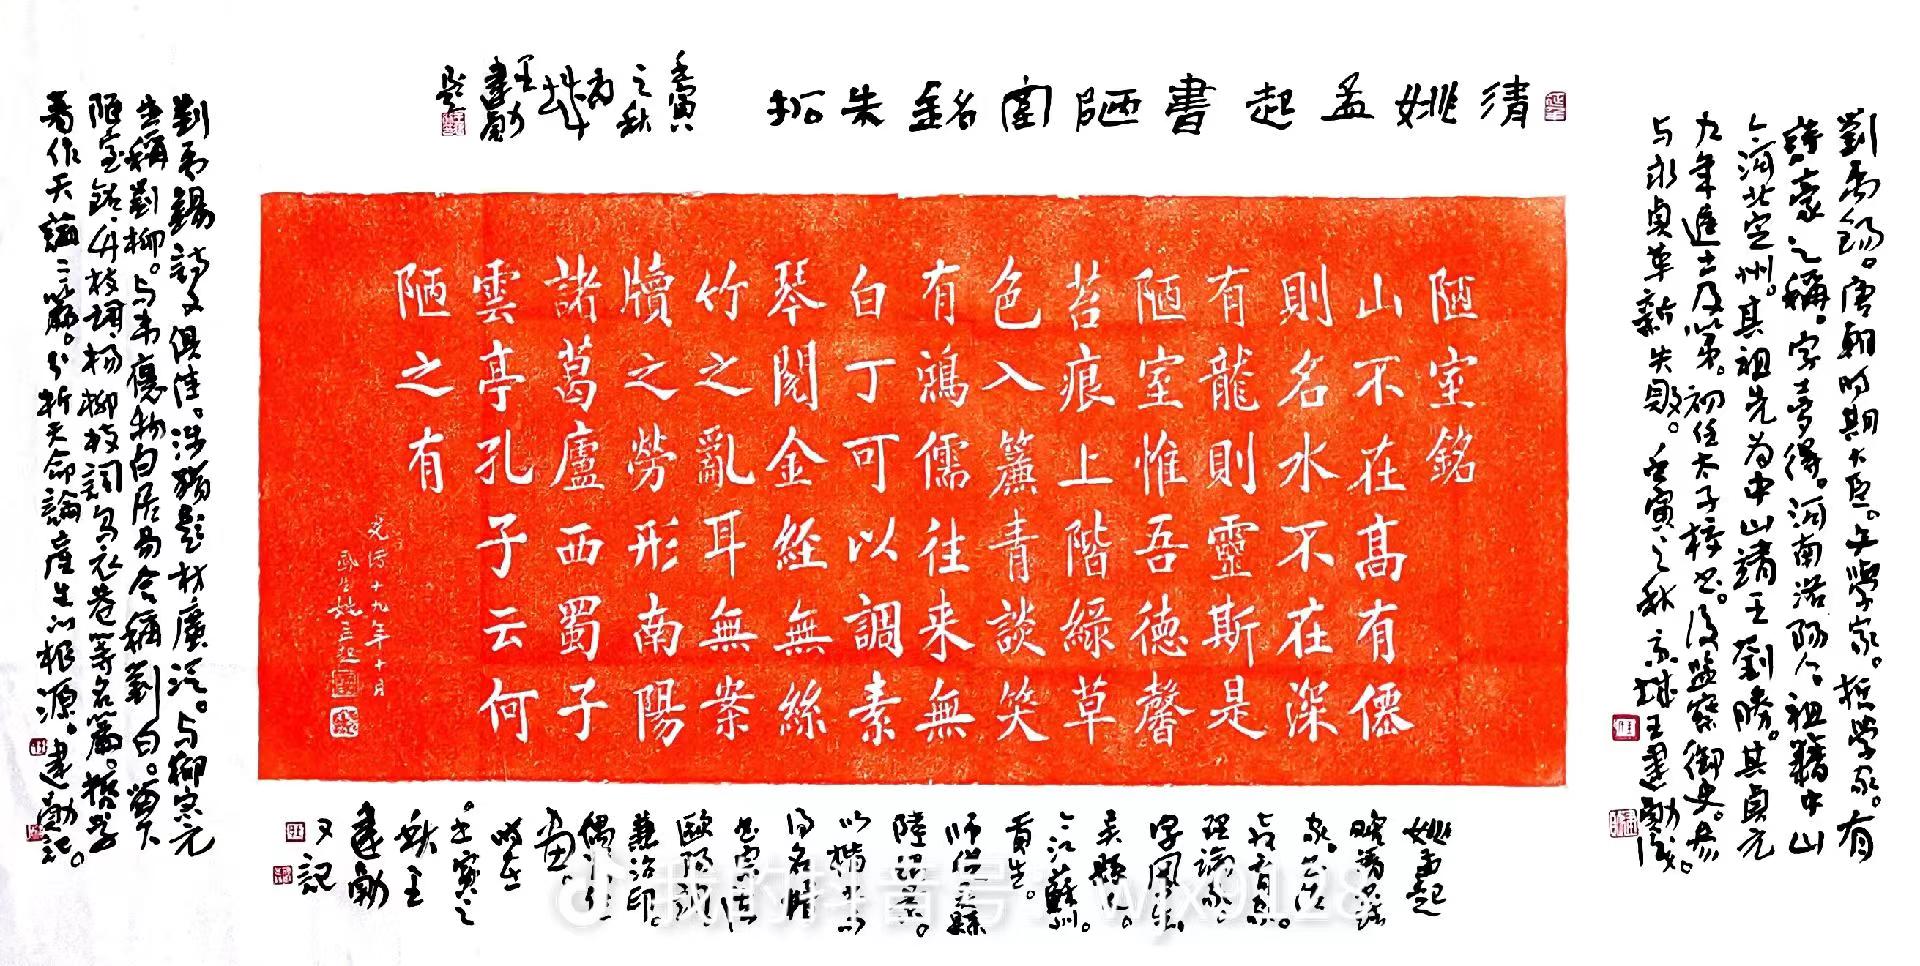 清姚孟起書陋室銘朱拓
壬寅
之秋
於京城
王建勛
題
劉禹錫。唐朝时期大臣。文學家。哲学家。有
詩豪之稱。字夢得。河南洛陽人祖籍中山
今河北定州。其祖先为中山靖王劉勝。其貞元
九年進士及第。初任太子校书。後監察御史。参
与永貞革新失敗。壬寅之秋京城王建勛识。
陋室銘
山不在高有僊
則名水不在深
有龍則靈斯是
陋室惟吾德馨
苔痕上階綠草
色入簾青談笑
有鴻儒往来無
白丁可以調素
琴閱金經無絲
竹之亂耳無案
牘之勞形南陽
諸葛廬西蜀子
雲亭孔子云何
陋之有
光緒十九年十月
鳳生姚孟起
劉禹錫詩文俱佳。涉獵題材廣泛。与柳宗元
並稱劉柳。与韦應物白居易合稱劉白。留下
陋室銘、竹枝词、杨柳枝词烏衣巷等名篇。哲学
著作天論三篇。分析天命論產生的根源。建勛記。
姚孟起
晚清書
家。书法
教育家。
理論家。
字凤生。
吴縣人。
今江蘇
貢生。
師從吴縣
陸紹景。
以楷书为
得名
书宗法
歐陽詢。
兼治印。
偶尔作
画。
時在
壬寅之
秋王
建勛
又記
我的抖音号: wjx9128